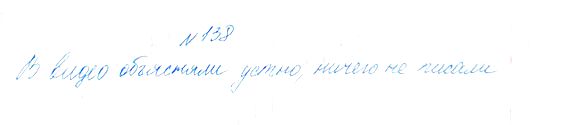 №138
В видео объясняли устно, ничего не писали